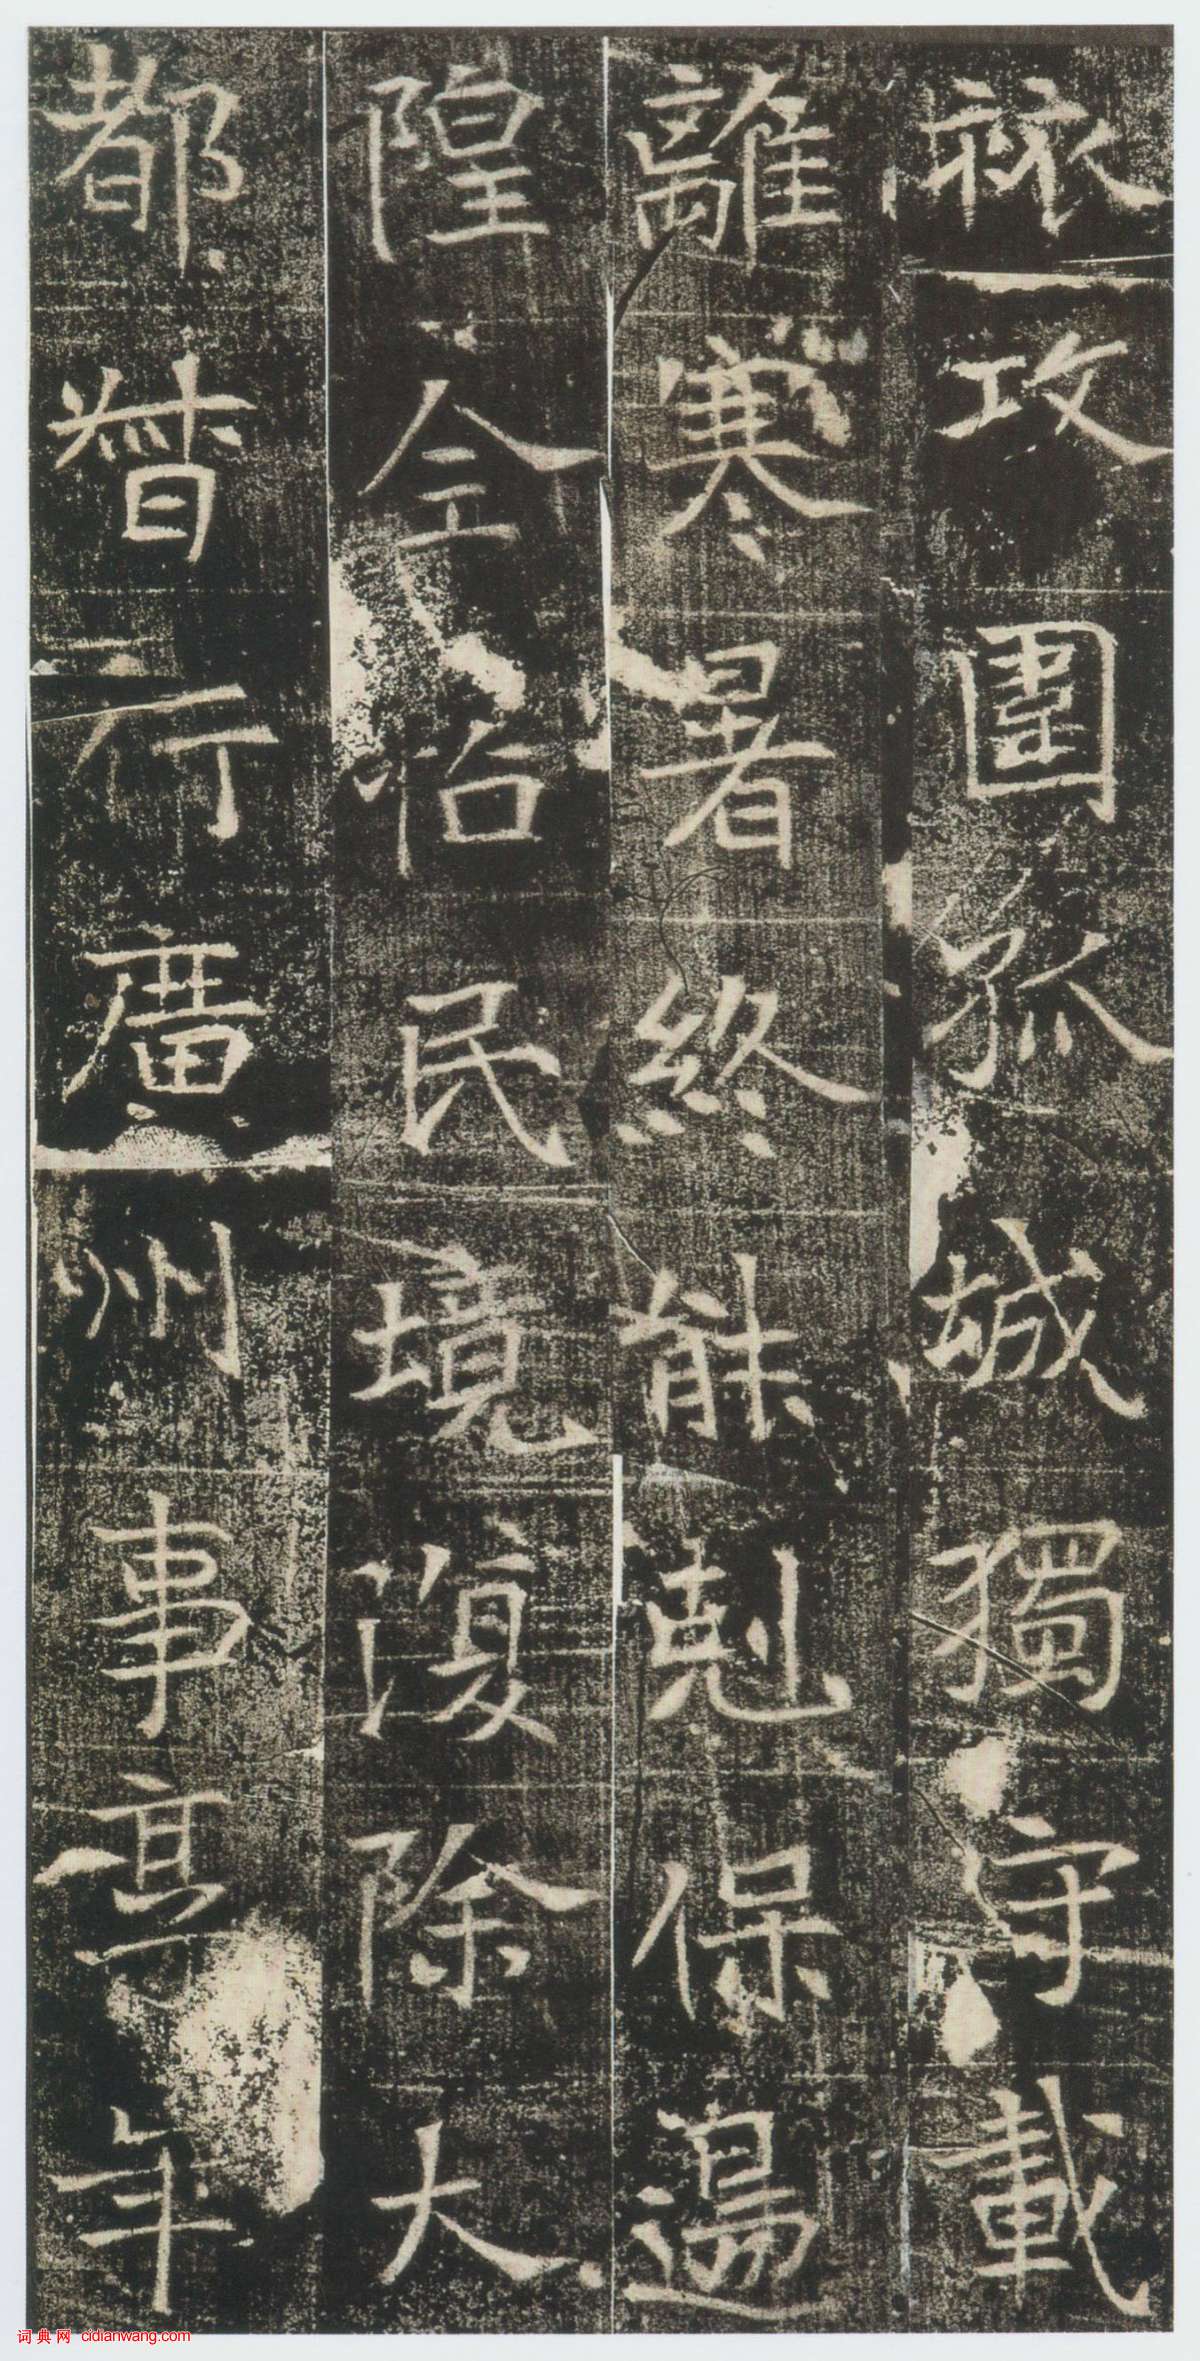 攻圍孤城獨守載
離寒暑終能剋保邊
隍全怡民境復除大
都督行廣州事享年
词典网 cidianwang.com